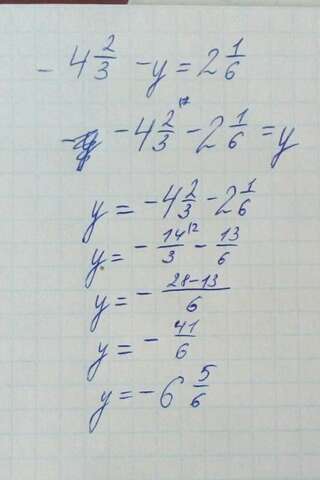 - 4 2/3 - y = 2 1/6
- 4 2/3 - 2 1/6 = y
y = - 4 2/3 - 2 1/6
y = - 14/3 - 13/6
y = - 28-13/6
y = - 41/6
y = - 6 5/6